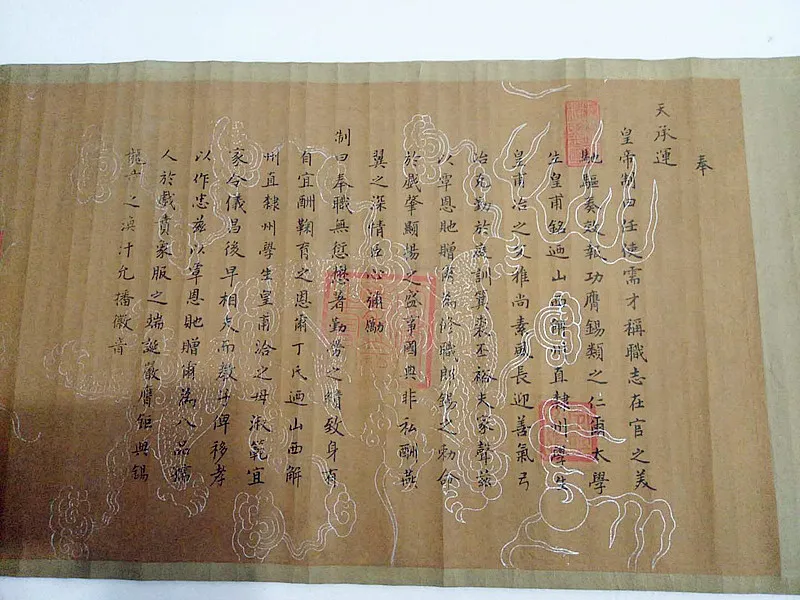 奉
天承運
皇帝制曰任使需才稱職志在官之美
馳驅奏效報功膺錫類之仁爾太學
生皇甫銘迺山西解州直隸州學生
皇甫冶之父雅尚素風長迎善氣弓
冶克勤於庭訓箕裘丕裕夫家聲茲
以覃恩貤贈爾為修職郎錫之勅命
於戲肇顯揚之盛事國典非私酬燕
翼之深情臣心彌勵
制曰奉職無愆懋著勤勞之績致身有
自宜酬鞠育之恩爾丁氏迺山西解
州直隸州學生皇甫洽之母淑範宜
家令儀昌後早相夫而教子俾移孝
以作忠茲以覃恩貤贈爾為八品孺
人於戲賁象服之端誕嚴膺鉅典錫
龍章之渙汗允播徽音